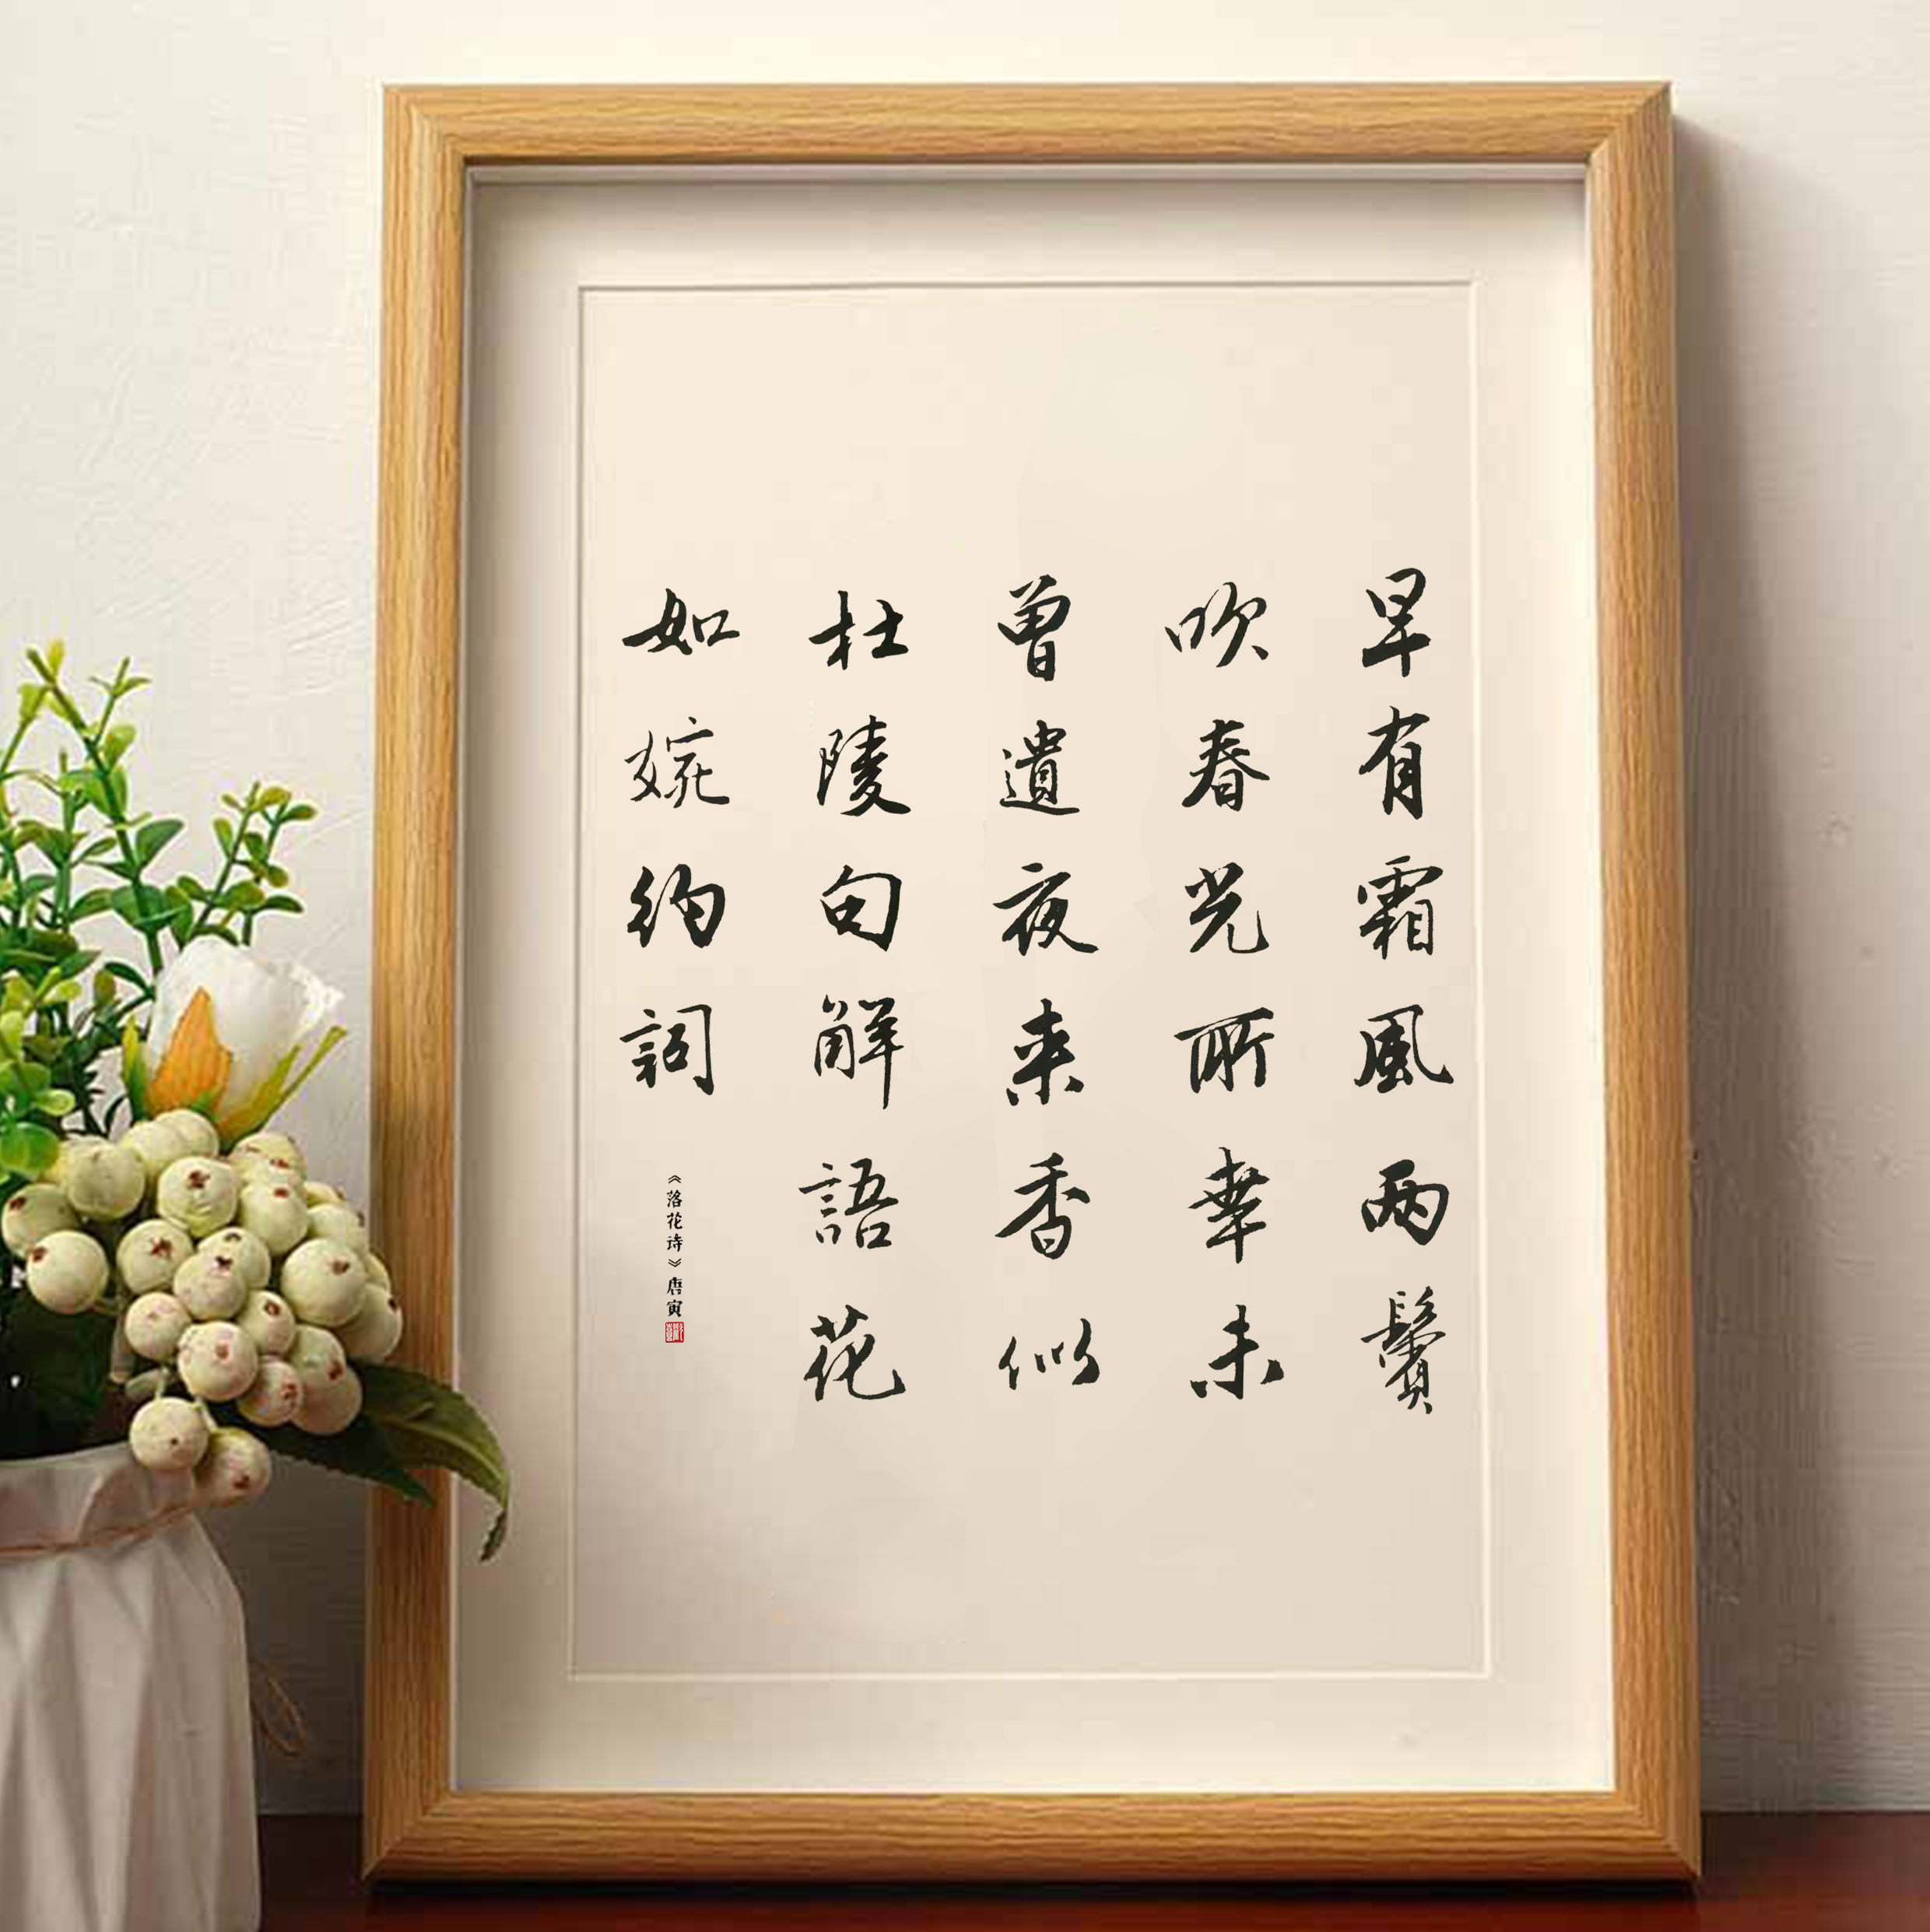 早有霜風兩鬢
吹春光所幸未
曾遺夜来香似
杜陵句解語花
如婉約詞
《落花诗》唐寅